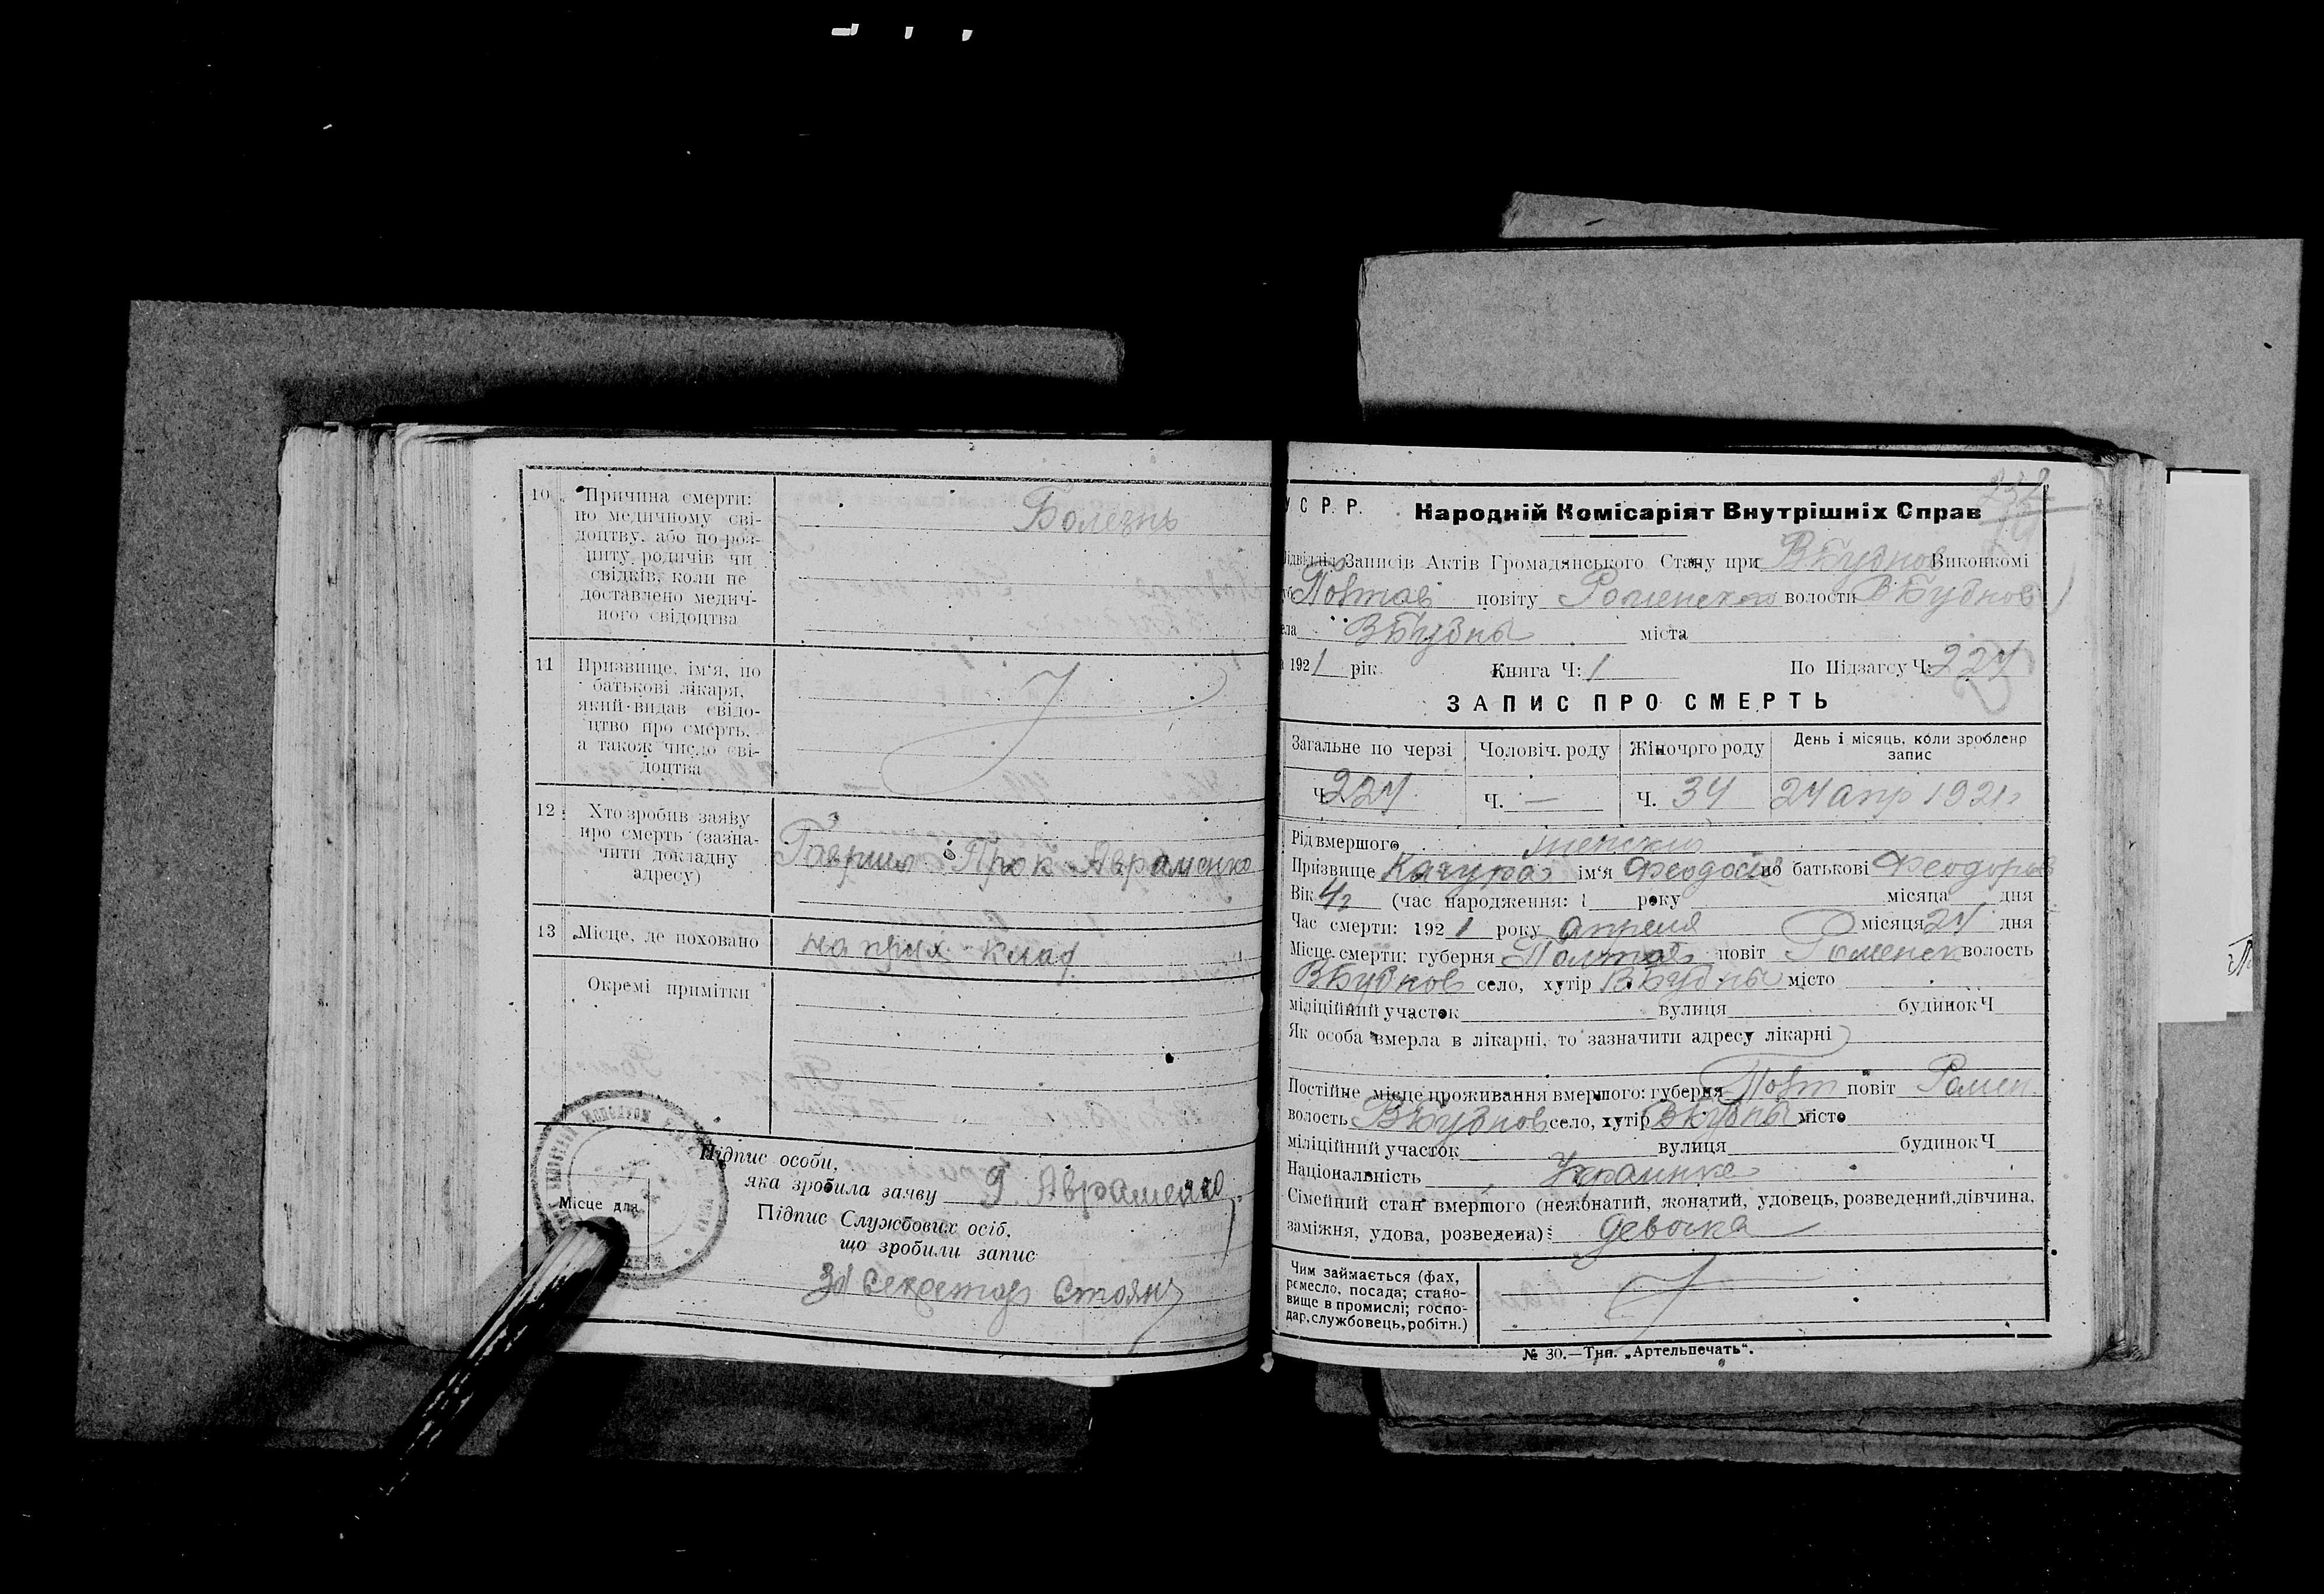 10 Причина смерти:
по медичному сві-
доцтву, або по роз-
питу родичів чи
свідків, коли не
доставлено медич-
ного свідоцтва
Болезнь
11 Призвище, ім'я, по
батькові лікаря,
який видав свідо-
цтво про смерть,
а також число сві-
доцтва
12 Хто зробив заяву
про смерть (зазна-
чити докладну
адресу)
Гаврил Прок Авраменко
13 Місце, де поховано
на прих клад
Окремі примітки
Місце для
Підпис особи,
яка зробила заяву Г. Авраменко
Підпис Службових осіб,
що зробили запис
За Секретар Стоян
У С. Р. Р. Народній Комісаріят Внутрішніх Справ
Відділ Записів Актів Громадянського Стану при ВБубнов Виконкомі
Повтав повіту Роменского волости ВБубнов
села ВБубны міста
1921 рік. Книга Ч: 1 По Підзагсу Ч: 227
ЗАПИС ПРО СМЕРТЬ
Загальне по черзі Чоловіч. роду Жіночого роду День і місяць, коли зроблено
запис
Ч. 227 Ч. — Ч. 34 24 апр 1921 г
Рід вмершого женский
Призвище Качура ім'я Феодосия по батькові Феодоров
Вік 4 г (час народження: 1 року місяца дня
Час смерти: 1921 року Апреля місяця 24 дня
Місце смерти: губерня Полтав повіт Роменск волость
ВБубнов село, хутір ВБубны місто
міліційний участок вулиця будинок Ч
Як особа вмерла в лікарні, то зазначити адресу лікарні
Постійне місце проживання вмершого: губерня Повт повіт Ромен
волость ВБубнов село, хутір ВБубны місто
міліційний участок вулиця будинок Ч
Національність Украинка
Сімейний стан вмершого (нежонатий, жонатий, удовець, розведений, дівчина,
заміжня, удова, розведена): девочка
Чим займається (фах,
ремесло, посада; стано-
вище в промислі; госпо-
дар, службовець, робітн.)
№ 30.—Тип. „Артельпечать“.